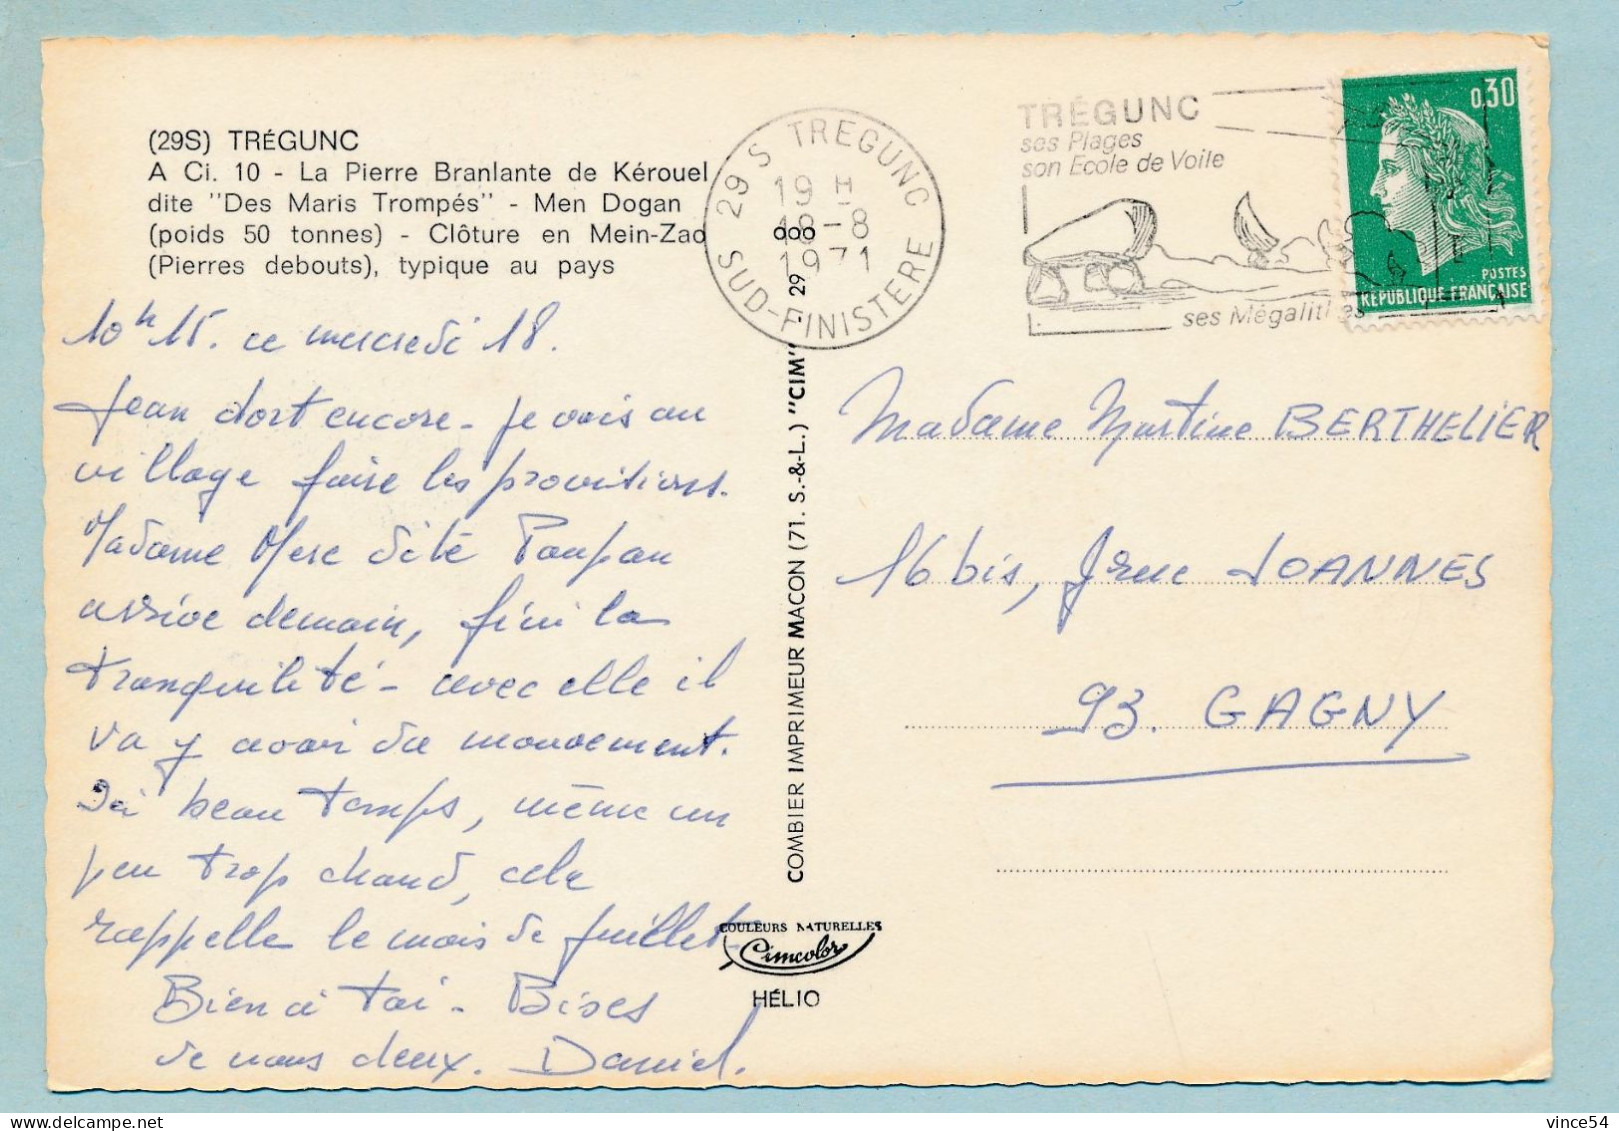 (29S) TRÉGUNC
A Ci. 10 - La Pierre Branlante de Kérouel
dite "Des Maris Trompés" - Men Dogan
(poids 50 tonnes) - Clôture en Mein-Zao
(Pierres debouts), typique au pays
10h15. ce mercredi 18.
Jean dort encore - je vais au
village faire les provisions.
Madame Mere dité Paupau
arrive demain, fini la
tranquilité - avec elle il
va y avoir du mouvement.
Ici beau temps, même un
peu trop chaud, cela
rappelle le mois de juillet -
Bien à toi - Bises
de nous deux. Daniel.
29 S TREGUNC
19 H
18-8
1971
SUD-FINISTERE
TRÉGUNC
ses Plages
son Ecole de Voile
ses Mégalithes
0,30
POSTES
RÉPUBLIQUE FRANÇAISE
COMBIER IMPRIMEUR MACON (71. S.-&-L.) "CIM" - 29
COULEURS NATURELLES
Cimcolor
HÉLIO
Madame Martine BERTHELIER
16 bis, rue JOANNES
93. GAGNY
vince54